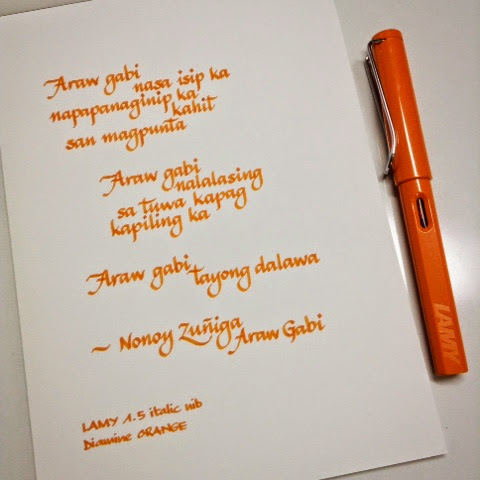 Araw gabi
nasa isip ka
napapanaginip ka
kahit
san magpunta
Araw gabi
nalalasing
sa tuwa kapag
kapiling ka
Araw gabi
tayong dalawa
~ Nonoy Zuñiga
Araw Gabi
LAMY 1.5 italic nib
Diamine ORANGE
LAMY